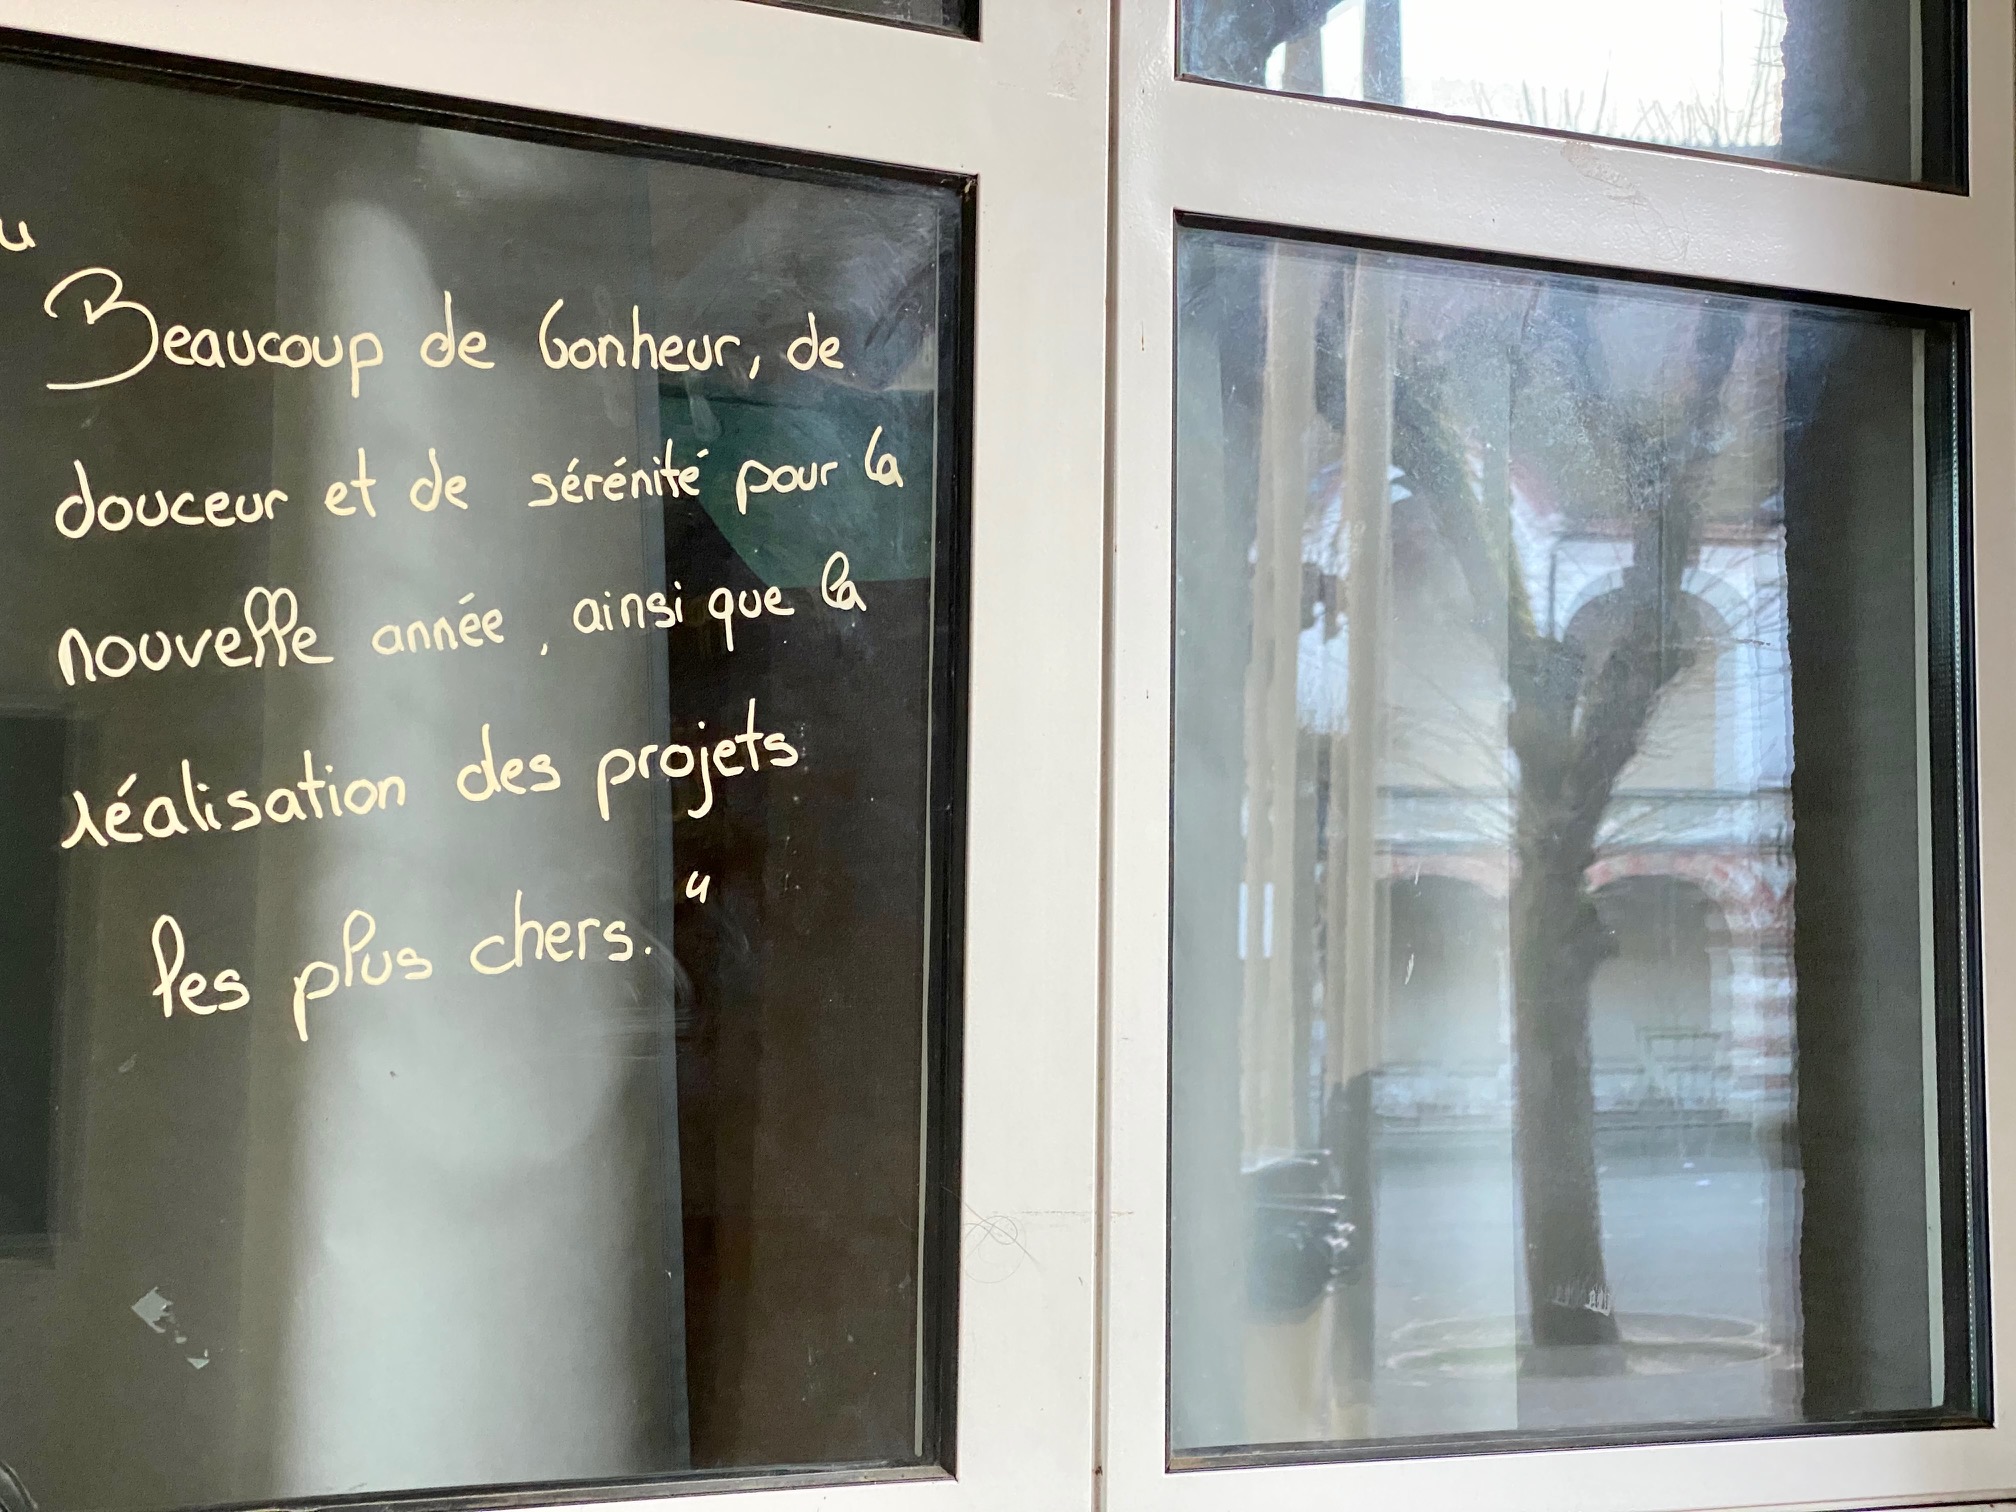 "
Beaucoup de bonheur, de
douceur et de sérénité pour la
nouvelle année, ainsi que la
réalisation des projets
les plus chers."